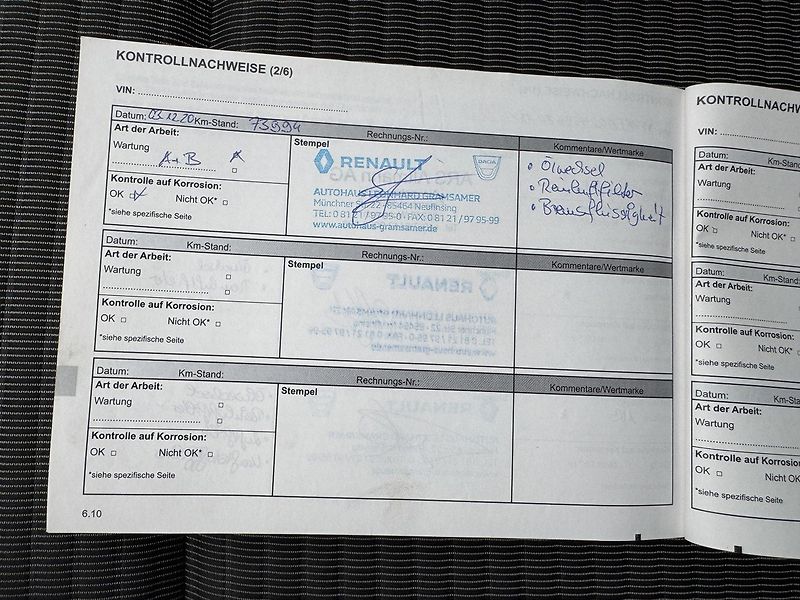 KONTROLLNACHWEISE (2/6)
VIN:
Datum: 03.12.20 Km-Stand: 73994 Rechnungs-Nr.:
Art der Arbeit:
Wartung
A+B
Kontrolle auf Korrosion:
OK Nicht OK*
*siehe spezifische Seite
Stempel
RENAULT DACIA
AUTOHAUS LEONHARD GRAMSAMER
Münchner Str. 22 · 85464 Neufinsing
TEL.: 0 81 21 / 97 95-0 · FAX: 0 81 21 / 97 95-99
www.autohaus-gramsamer.de
Kommentare/Wertmarke
• Ölwechsel
• Reinluftfilter
• Bremsflüssigkeit
Datum: Km-Stand: Rechnungs-Nr.:
Art der Arbeit:
Wartung
Kontrolle auf Korrosion:
OK Nicht OK*
*siehe spezifische Seite
Stempel
Kommentare/Wertmarke
Datum: Km-Stand: Rechnungs-Nr.:
Art der Arbeit:
Wartung
Kontrolle auf Korrosion:
OK Nicht OK*
*siehe spezifische Seite
Stempel
Kommentare/Wertmarke
6.10
KONTROLLNACHW
VIN:
Datum: Km-Stand:
Art der Arbeit:
Wartung
Kontrolle auf Korrosion
OK Nicht OK*
*siehe spezifische Seite
Datum: Km-Stand:
Art der Arbeit:
Wartung
Kontrolle auf Korrosio
OK Nicht OK*
*siehe spezifische Seite
Datum: Km-Stand
Art der Arbeit:
Wartung
Kontrolle auf Korrosio
OK Nicht OK
*siehe spezifische Seite